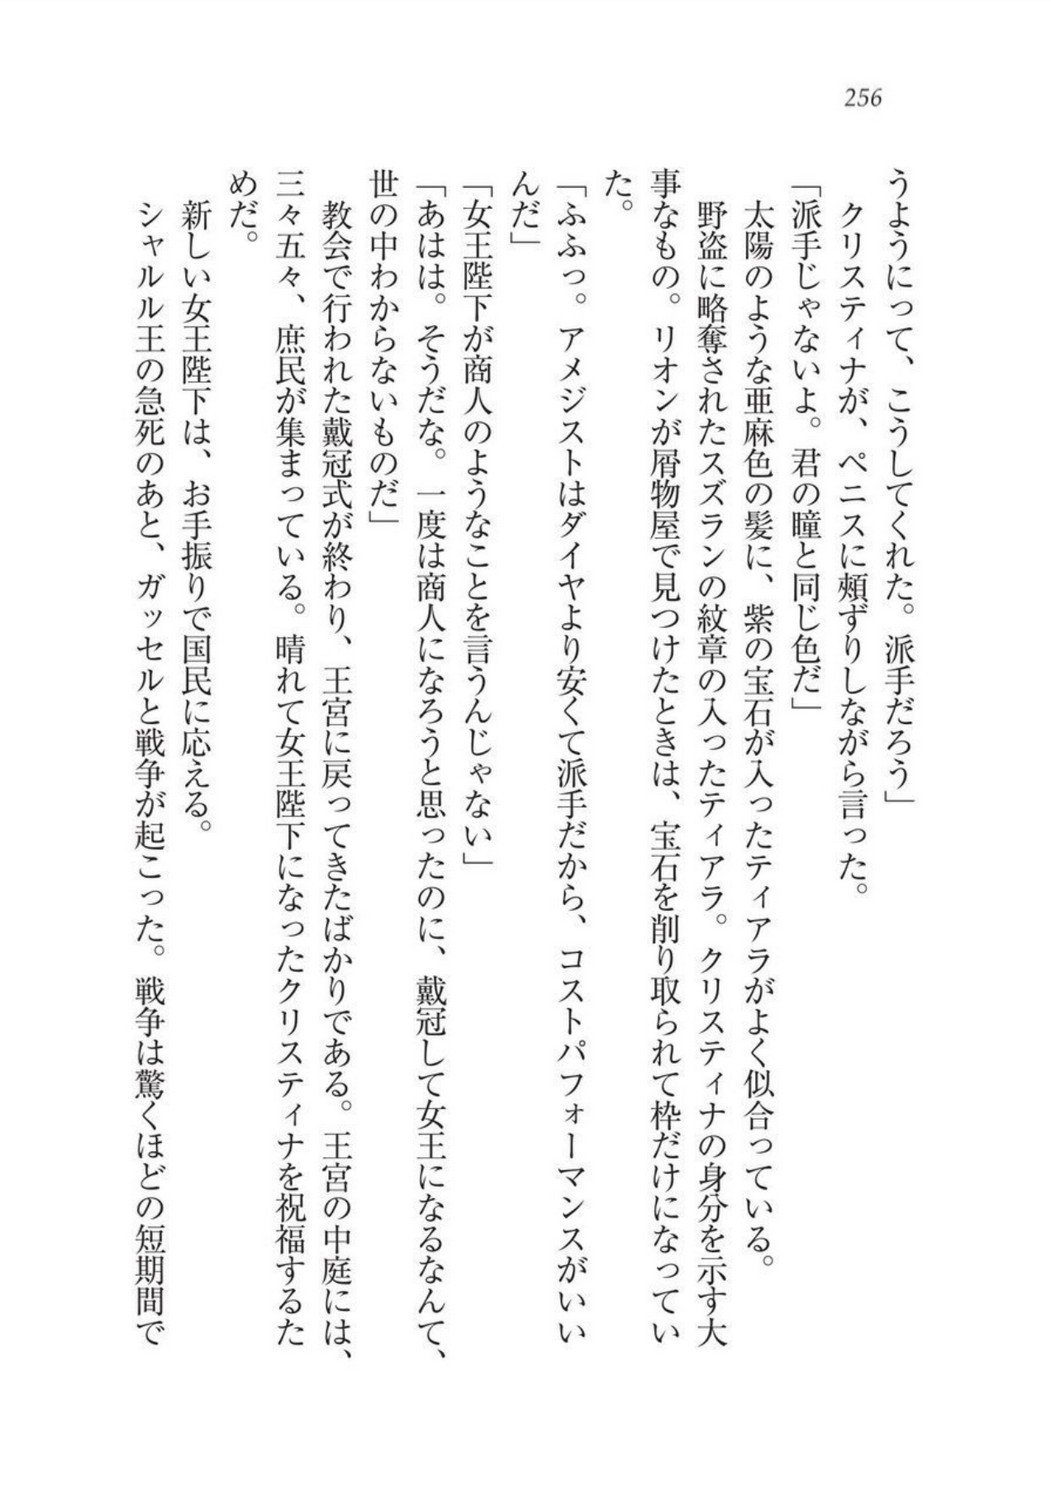 256
うようにって、こうしてくれた。派手だろう」
クリスティナが、ペニスに頰ずりしながら言った。
「派手じゃないよ。君の瞳と同じ色だ」
太陽のような亜麻色の髪に、紫の宝石が入ったティアラがよく似合っている。
野盗に略奪されたスズランの紋章の入ったティアラ。クリスティナの身分を示す大
事なもの。リオンが屑物屋で見つけたときは、宝石を削り取られて枠だけになってい
た。
「ふふっ。アメジストはダイヤより安くて派手だから、コストパフォーマンスがいい
んだ」
「女王陛下が商人のようなことを言うんじゃない」
「あはは。そうだな。一度は商人になろうと思ったのに、戴冠して女王になるなんて、
世の中わからないものだ」
教会で行われた戴冠式が終わり、王宮に戻ってきたばかりである。王宮の中庭には、
三々五々、庶民が集まっている。晴れて女王陛下になったクリスティナを祝福するた
めだ。
新しい女王陛下は、お手振りで国民に応える。
シャルル王の急死のあと、ガッセルと戦争が起こった。戦争は驚くほどの短期間で